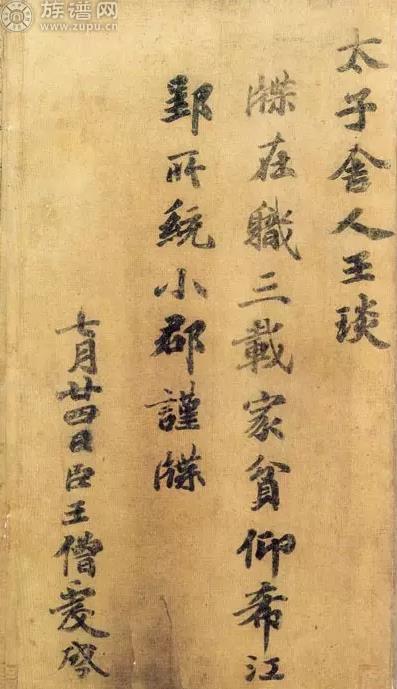 族谱网
www.zupu.cn
太子舍人王琰
牒在職三載家貧仰希江
郢所統小郡謹牒
七月廿四日臣王僧虔啓